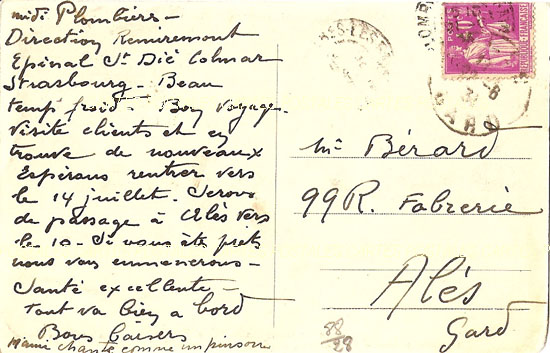 midi Plombières -
Direction Remiremont
Epinal St Dié Colmar
Strasbourg - Beau
temps froid - Bon voyage
Visite clients et en
trouve de nouveaux
Espérons rentrer vers
le 14 juillet. Serons
de passage à Alès vers
le 10 - Si vous ête prets
nous vous emmenerons -
Santé excellente -
Tout va bien a bord
Bons Baisers
Mamie chante comme un pinson
Mr Bérard
99 R. Fabrerie
Alés
Gard
GARD
REPUBLIQUE FRANÇAISE